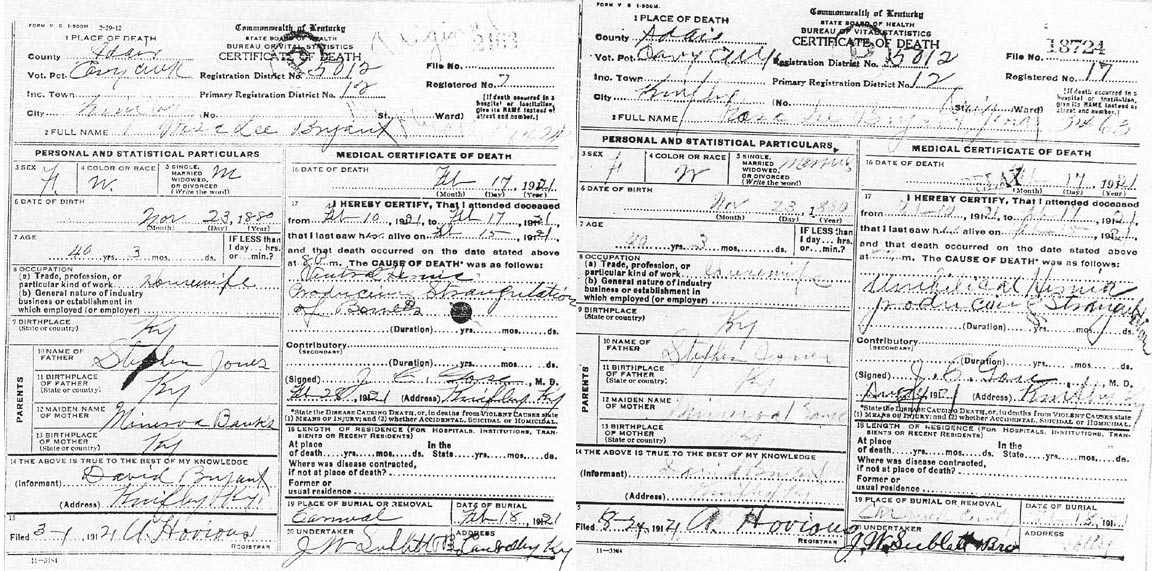 FORM V S 1-500M. 2-29-12
Commonwealth of Kentucky
STATE BOARD OF HEALTH
BUREAU OF VITAL STATISTICS
CERTIFICATE OF DEATH
1 PLACE OF DEATH
County Adair
Vot. Pct. Registration District No. 5012
File No.
Inc. Town Primary Registration District No. 12
Registered No. 7
City (No. St. Ward)
(If death occurred in a hospital or institution, give its NAME instead of street and number.)
2 FULL NAME Rosa Lee Bryant
PERSONAL AND STATISTICAL PARTICULARS
3 SEX F
4 COLOR OR RACE W.
5 SINGLE, MARRIED WIDOWED, OR DIVORCED (Write the word) M
6 DATE OF BIRTH
Nov 23, 1880
(Month) (Day) (Year)
7 AGE
40 yrs. 3 mos. ds.
IF LESS than 1 day... hrs. or... min.?
8 OCCUPATION
(a) Trade, profession, or particular kind of work Housewife
(b) General nature of industry business or establishment in which employed (or employer)
9 BIRTHPLACE (State or country) Ky
PARENTS
10 NAME OF FATHER Stephen Jones
11 BIRTHPLACE OF FATHER (State or country) Ky
12 MAIDEN NAME OF MOTHER Banks
13 BIRTHPLACE OF MOTHER (State or country) Ky
14 THE ABOVE IS TRUE TO THE BEST OF MY KNOWLEDGE
(Informant) David Bryant
(Address) Knifley Ky.
15
Filed 3-1 1921 A Hovious
REGISTRAR
11-3184
MEDICAL CERTIFICATE OF DEATH
16 DATE OF DEATH
Feb 17 1921
(Month) (Day) (Year)
17 I HEREBY CERTIFY, That I attended deceased
from Feb 10, 1921, to Feb 17, 1921
that I last saw her alive on Feb 15, 1921
and that death occurred on the date stated above
at m. The CAUSE OF DEATH* was as follows:
Hernia
Producing Strangulation
of Bowels
(Duration) yrs. mos. ds.
Contributory (SECONDARY)
(Duration) yrs. mos. ds.
(Signed) J. C. M. D.
(Address) Knifley, Ky
*State the DISEASE CAUSING DEATH, or, in deaths from VIOLENT CAUSES state (1) MEANS OF INJURY; and (2) whether ACCIDENTAL, SUICIDAL or HOMICIDAL.
18 LENGTH OF RESIDENCE (FOR HOSPITALS, INSTITUTIONS, TRANSIENTS OR RECENT RESIDENTS)
At place of death yrs. mos. ds. In the State yrs. mos. ds.
Where was disease contracted, if not at place of death?
Former or usual residence
19 PLACE OF BURIAL OR REMOVAL
DATE OF BURIAL Feb 18, 1921
20 UNDERTAKER J W Sublett Bro
ADDRESS Ky
FORM V S 1-500M.
Commonwealth of Kentucky
STATE BOARD OF HEALTH
BUREAU OF VITAL STATISTICS
CERTIFICATE OF DEATH
18724
1 PLACE OF DEATH
County Adair
Vot. Pct. Registration District No. 5012
File No.
Inc. Town Primary Registration District No. 12
Registered No. 17
City Knifley (No. St. Ward)
(If death occurred in a hospital or institution, give its NAME instead of street and number.)
2 FULL NAME Rosa Lee Bryant
PERSONAL AND STATISTICAL PARTICULARS
3 SEX F
4 COLOR OR RACE W
5 SINGLE, MARRIED WIDOWED, OR DIVORCED (Write the word) Married
6 DATE OF BIRTH
Nov 23, 1880
(Month) (Day) (Year)
7 AGE
40 yrs. 3 mos. ds.
IF LESS than 1 day... hrs. or... min.?
8 OCCUPATION
(a) Trade, profession, or particular kind of work Housewife
(b) General nature of industry business or establishment in which employed (or employer)
9 BIRTHPLACE (State or country) Ky
PARENTS
10 NAME OF FATHER Stephen Jones
11 BIRTHPLACE OF FATHER (State or country)
12 MAIDEN NAME OF MOTHER
13 BIRTHPLACE OF MOTHER (State or country)
14 THE ABOVE IS TRUE TO THE BEST OF MY KNOWLEDGE
(Informant) David Bryant
(Address) Knifley
Filed 8-24 1921 A Hovious
REGISTRAR
11-3184
MEDICAL CERTIFICATE OF DEATH
16 DATE OF DEATH
DELAY
17 1921
(Month) (Day) (Year)
17 I HEREBY CERTIFY, That I attended deceased
from to
that I last saw alive on
and that death occurred on the date stated above
at m. The CAUSE OF DEATH* was as follows:
Umbilical Hernia
producing Strangulation
(Duration) yrs. mos. ds.
Contributory (SECONDARY)
(Duration) yrs. mos. ds.
(Signed) J. C. M. D.
(Address) Knifley Ky
*State the DISEASE CAUSING DEATH, or, in deaths from VIOLENT CAUSES state (1) MEANS OF INJURY; and (2) whether ACCIDENTAL, SUICIDAL or HOMICIDAL.
18 LENGTH OF RESIDENCE (FOR HOSPITALS, INSTITUTIONS, TRANSIENTS OR RECENT RESIDENTS)
At place of death yrs. mos. ds. In the State yrs. mos. ds.
Where was disease contracted, if not at place of death?
Former or usual residence
19 PLACE OF BURIAL OR REMOVAL
DATE OF BURIAL
UNDERTAKER J. W. Sublett Bro
ADDRESS